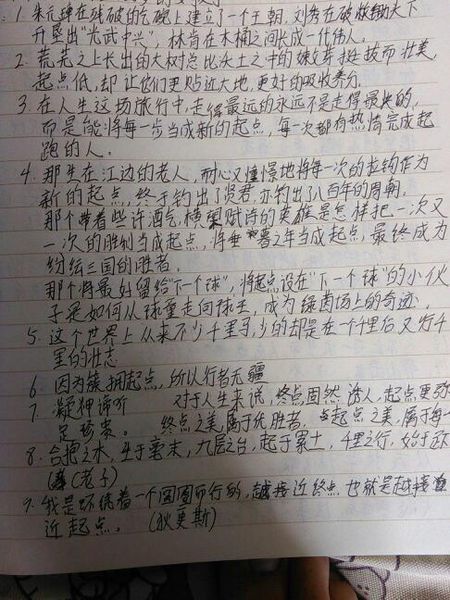 1. 朱元璋在残破的乞碗上建立了一个王朝. 刘秀在破败的天下
升垒出"光武中兴", 林肯在木桶之间长成一代伟人。
2. 荒芜之上长出的大树总比沃土之中的嫩芽挺拔而壮美,
起点低, 却让他们更贴近大地, 更好的吸收养分.
3. 在人生这场旅行中, 走得最远的永远不是走得最快的,
而是能将每一步当成新的起点, 每一次都有热情完成起
跑的人.
4. 那坐在江边的老人, 耐心又憧憬地将每一次的拉钩作为
新的起点, 终于钓出了贤君. 亦钓出了八百年的周朝.
那个带着些许酒气, 横槊赋诗的英雄是怎样把一次又
一次的胜利当成起点, 将垂暮之年当成起点, 最终成为
纷纭三国的胜者.
那个将最好留给"下一个球", 将起点设在"下一个球"的小伙
子是如何从球童走向球王, 成为绿茵场上的奇迹.
5. 这个世界上从来不少千里马, 少的却是在一个千里后又行千
里的壮志
6. 因为簇拥起点, 所以行者无疆
7. 凝神谛听 对于人生来说, 终点固然诱人, 起点更弥
足珍贵。 终点之美, 属于优胜者, 起点之美, 属于每一
8. 合抱之木, 生于毫末, 九层之台, 起于累土, 千里之行, 始于足
(老子)
9. 我是环绕着一个圆圈而行的, 越接近终点也就是越接
近起点. (狄更斯)